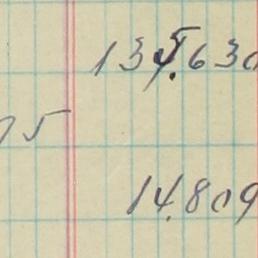 135.630
75
14.809